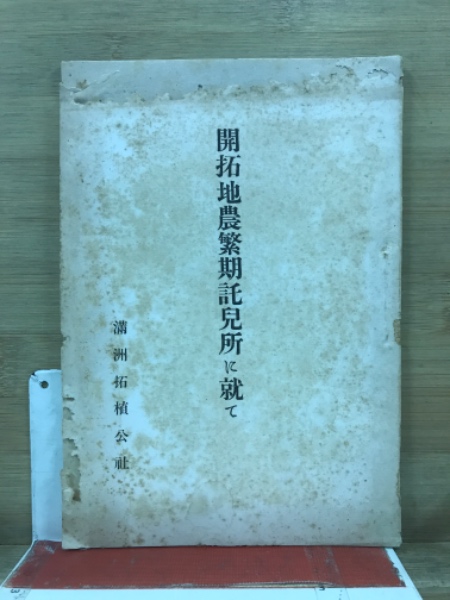 開拓地農繁期託兒所に就て
滿洲拓植公社